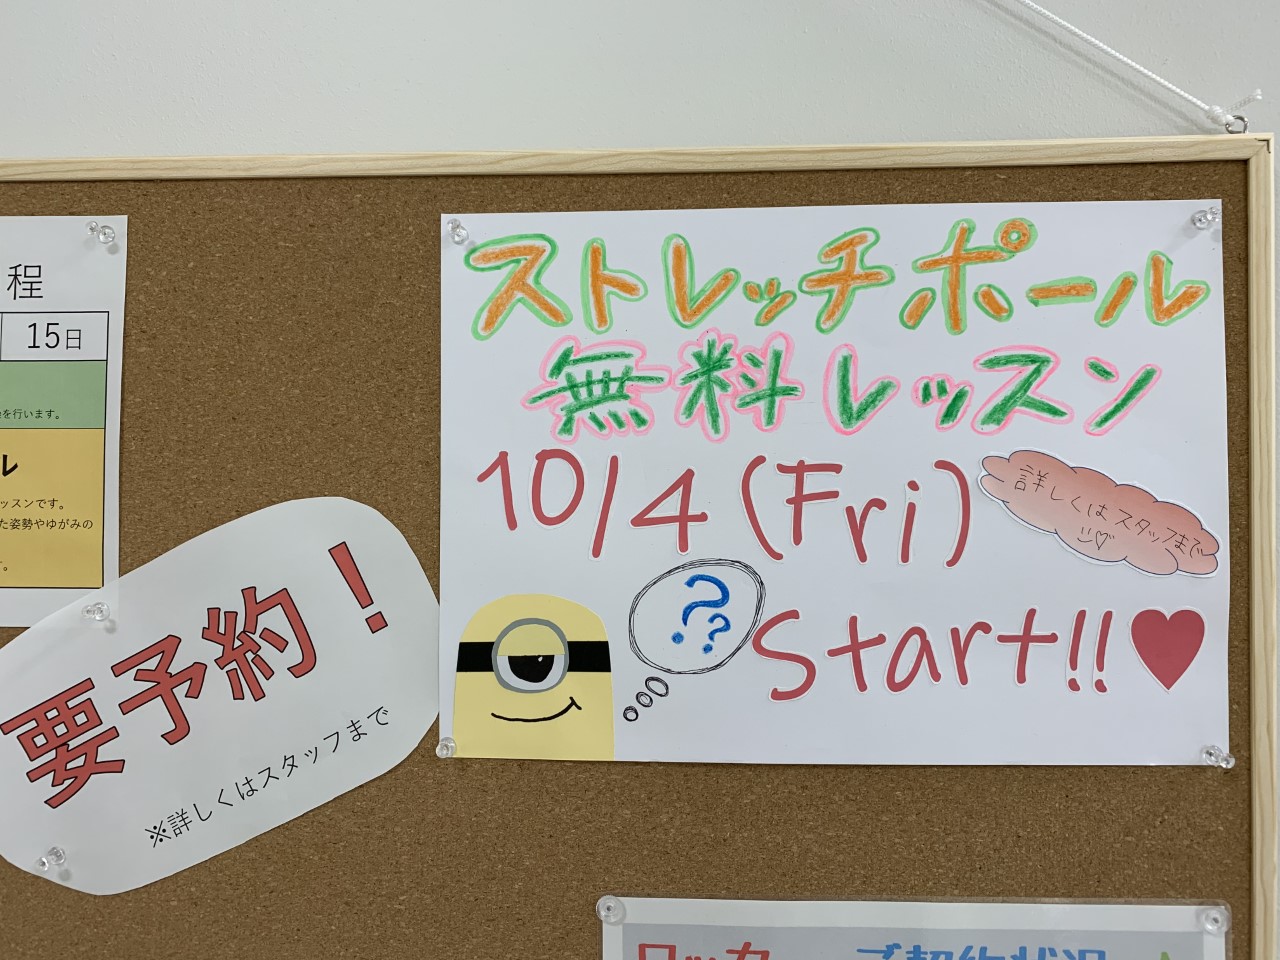 程
15日
を行います。
ル
ッスンです。
た姿勢やゆがみの
す。
要予約！
※詳しくはスタッフまで
ストレッチポール
無料レッスン
10/4(Fri)
詳しくは スタッフまで
??
Start!!
ロッカー ご契約状況